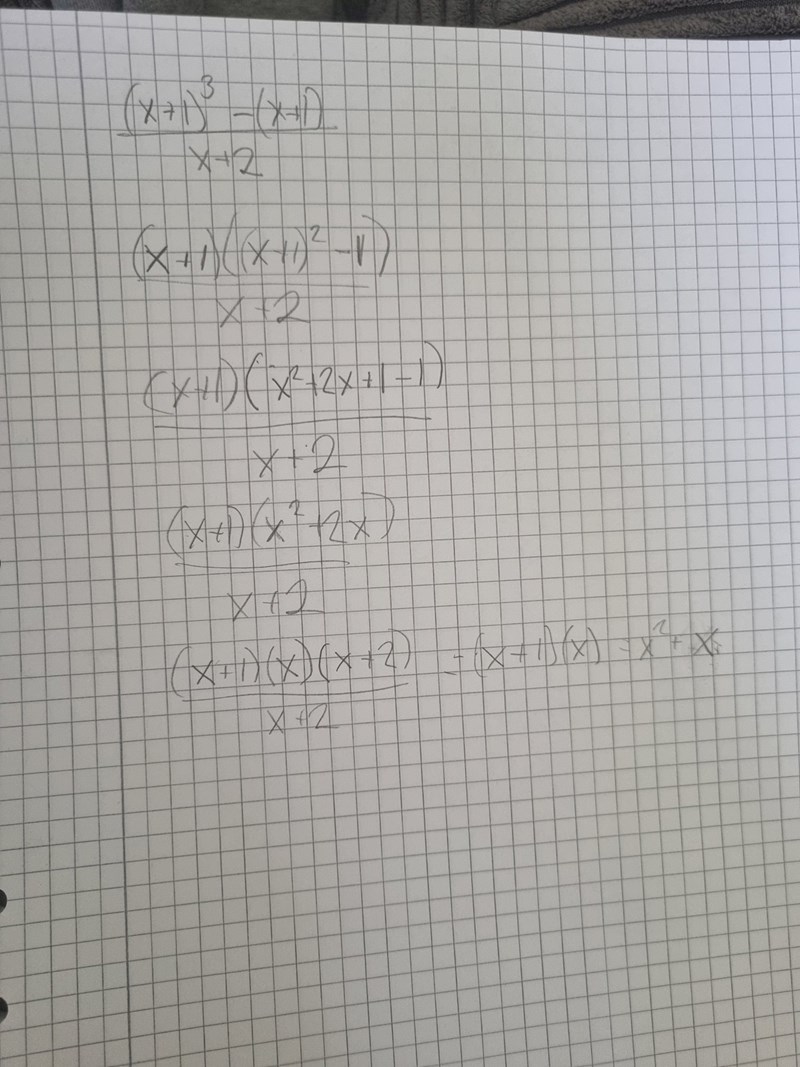 (x+1)³ -(x+1)
x+2
(x+1)((x+1)² -1)
x+2
(x+1)(x²+2x+1-1)
x+2
(x+1)(x²+2x)
x+2
(x+1)(x)(x+2) = (x+1)(x) = x²+x
x+2